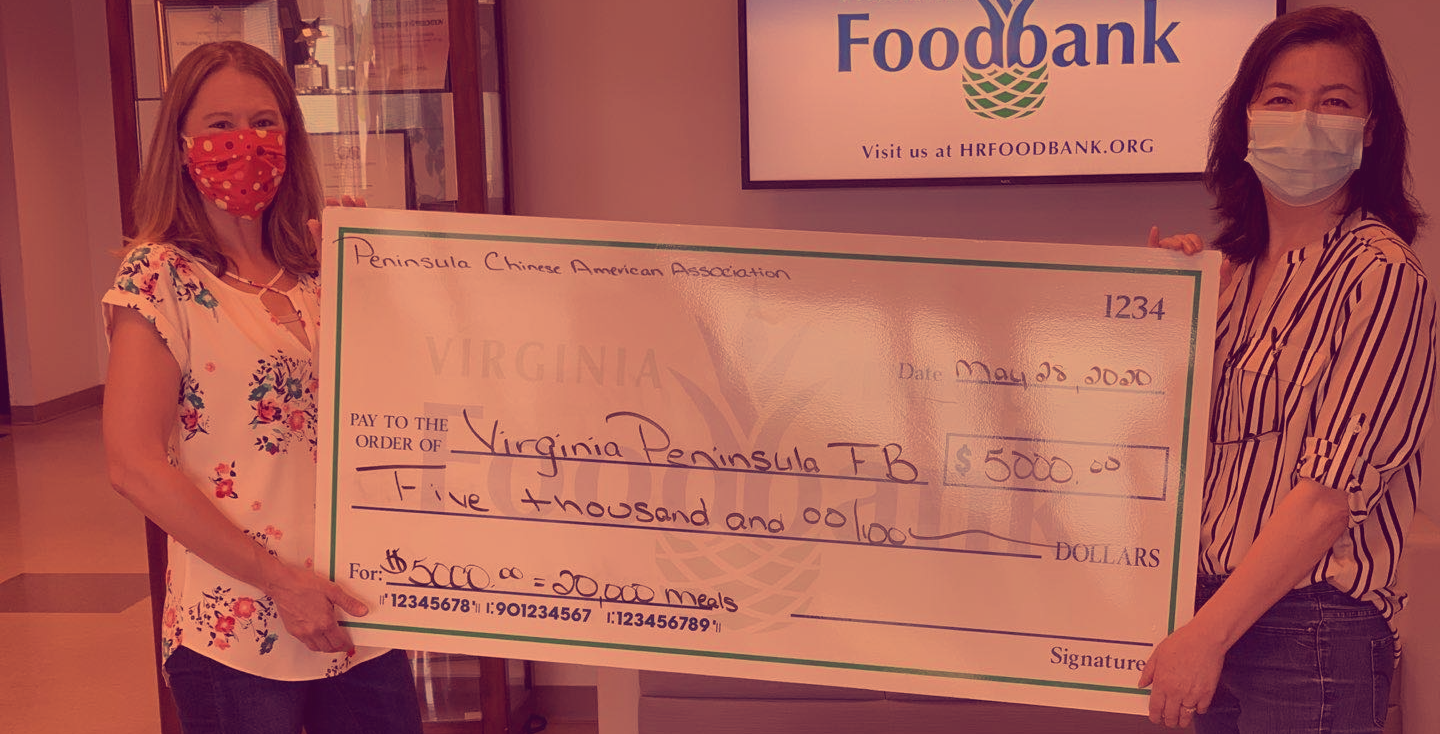 Foodbank
Visit us at HRFOODBANK.ORG
Peninsula Chinese American Association
1234
VIRGINIA
Date May 28, 2020
PAY TO THE
ORDER OF Virginia Peninsula FB $ 5000.00
Foodbank
Five thousand and 00/100 DOLLARS
For: $5000.00 = 20,000 meals
⑈12345678⑈ ⑆901234567 ⑆123456789⑈
Signature